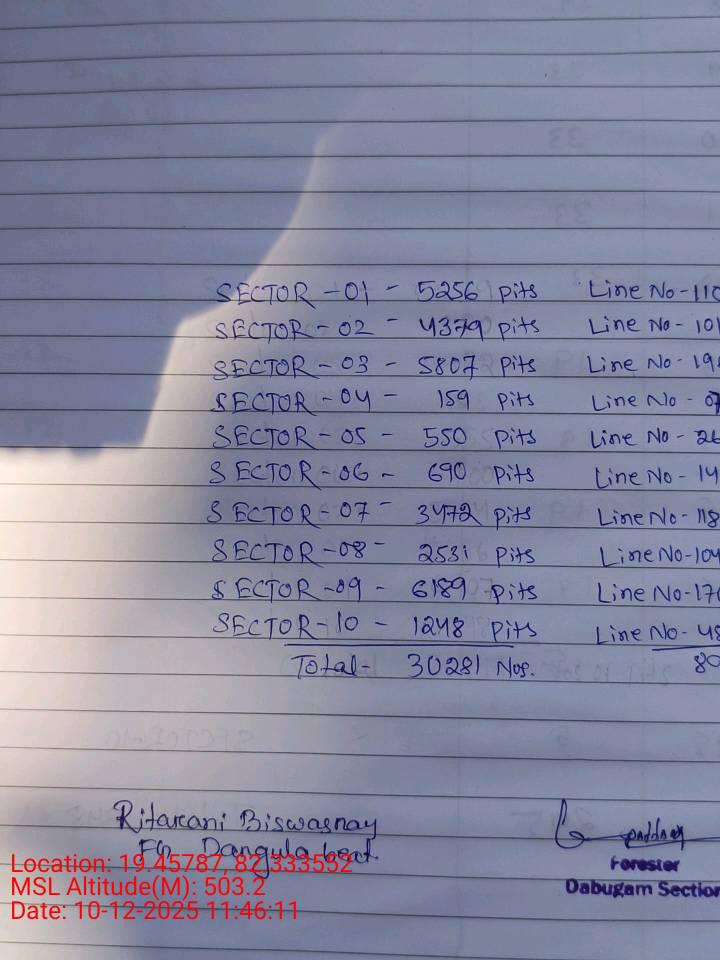 SECTOR-01 - 5256 Pits Line No-110
SECTOR-02 - 4379 Pits Line No-101
SECTOR-03 - 5807 Pits Line No-19
SECTOR-04 - 159 Pits Line No-07
SECTOR-05 - 550 Pits Line No-26
SECTOR-06 - 690 Pits Line No-14
SECTOR-07 - 3472 Pits Line No-118
SECTOR-08 - 2531 Pits Line No-104
SECTOR-09 - 6189 Pits Line No-170
SECTOR-10 - 1248 Pits Line No-48
Total- 30281 Nos. 89
Ritarani Biswasray
FG Dangula beat
Forester
Dabugam Section
Location: 19.45787, 82.333552
MSL Altitude(M): 503.2
Date: 10-12-2025 11:46:11